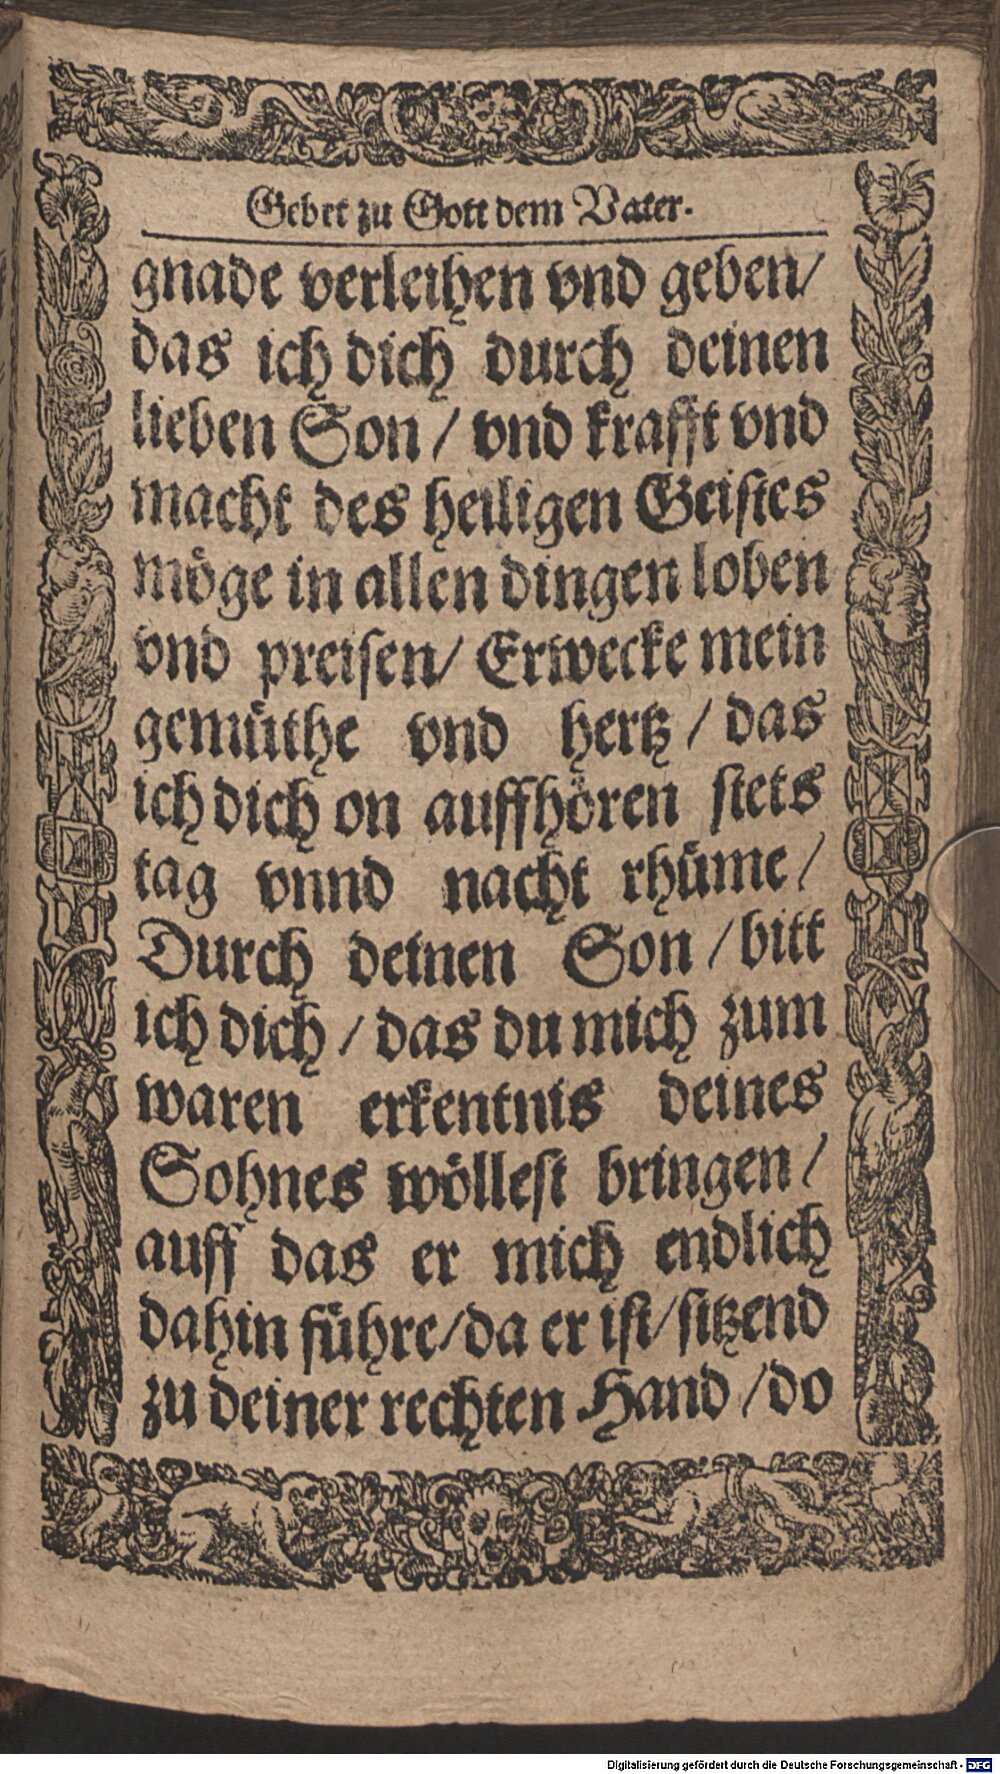 Gebet zu Gott dem Vater.
gnade verleihen vnd geben/
das ich dich durch deinen
lieben Son / vnd krafft vnd
macht des heiligen Geistes
möge in allen dingen loben
vnd preisen/ Erwecke mein
gemüthe vnd hertz / das
ich dich on auffhören stets
tag vnnd nacht rhüme /
Durch deinen Son / bitt
ich dich / das du mich zum
waren erkentnis deines
Sohnes wöllest bringen /
auff das er mich endlich
dahin führe/da er ist/sitzend
zu deiner rechten Hand /do
Digitalisierung gefördert durch die Deutsche Forschungsgemeinschaft - DFG